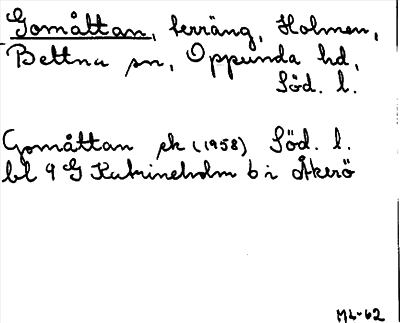 Gomåttan, terräng, Holmen,
Bettna sn, Oppunda hd,
Söd. l.
Gomåttan ek (1958) Söd. l.
bl 9 G Katrineholm 6 i Åkerö
ML-62